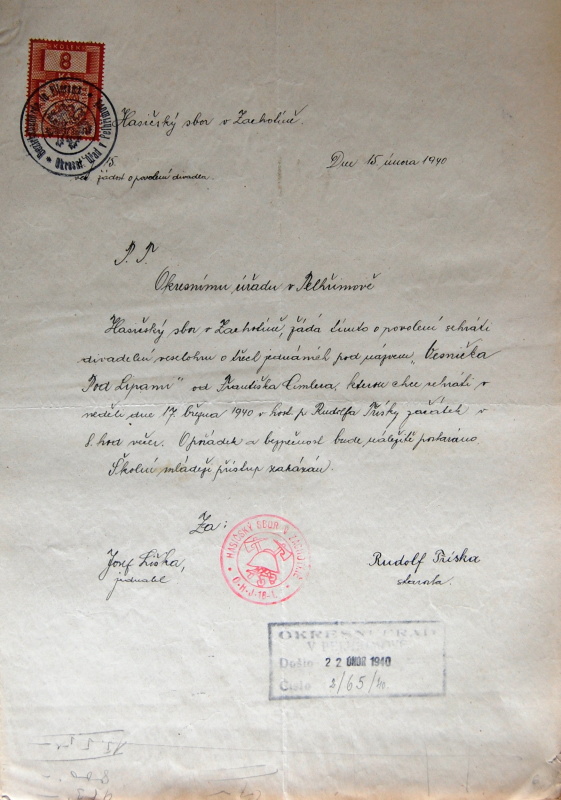 KOLEK
8
Hasičský sbor v Zachotíně.
Dne 15. února 1940
žádost o povolení divadla.
P. T.
Okresnímu úřadu v Pelhřimově
Hasičský sbor v Zachotíně, žádá tímto o povolení sehráti
divadelní veselohru o třech jednáních pod názvem „Vesnička
Pod Lipami" od Františka Cimlera, kterou chce sehráti v
neděli dne 17. března 1940 v host p. Rudolfa Přísky začátek v
8. hod več. O pořádek a bezpečnost bude náležitě postaráno.
Školní mládeži přístup zakázán.
Za:
HASIČSKÝ SBOR V ZACHOTÍNĚ
Josef Liška,
jednatel
Rudolf Příska
starosta.
OKRESNÍ ÚŘAD
V PELHŘIMOVĚ
Došlo 22 ÚNOR 1940
Číslo